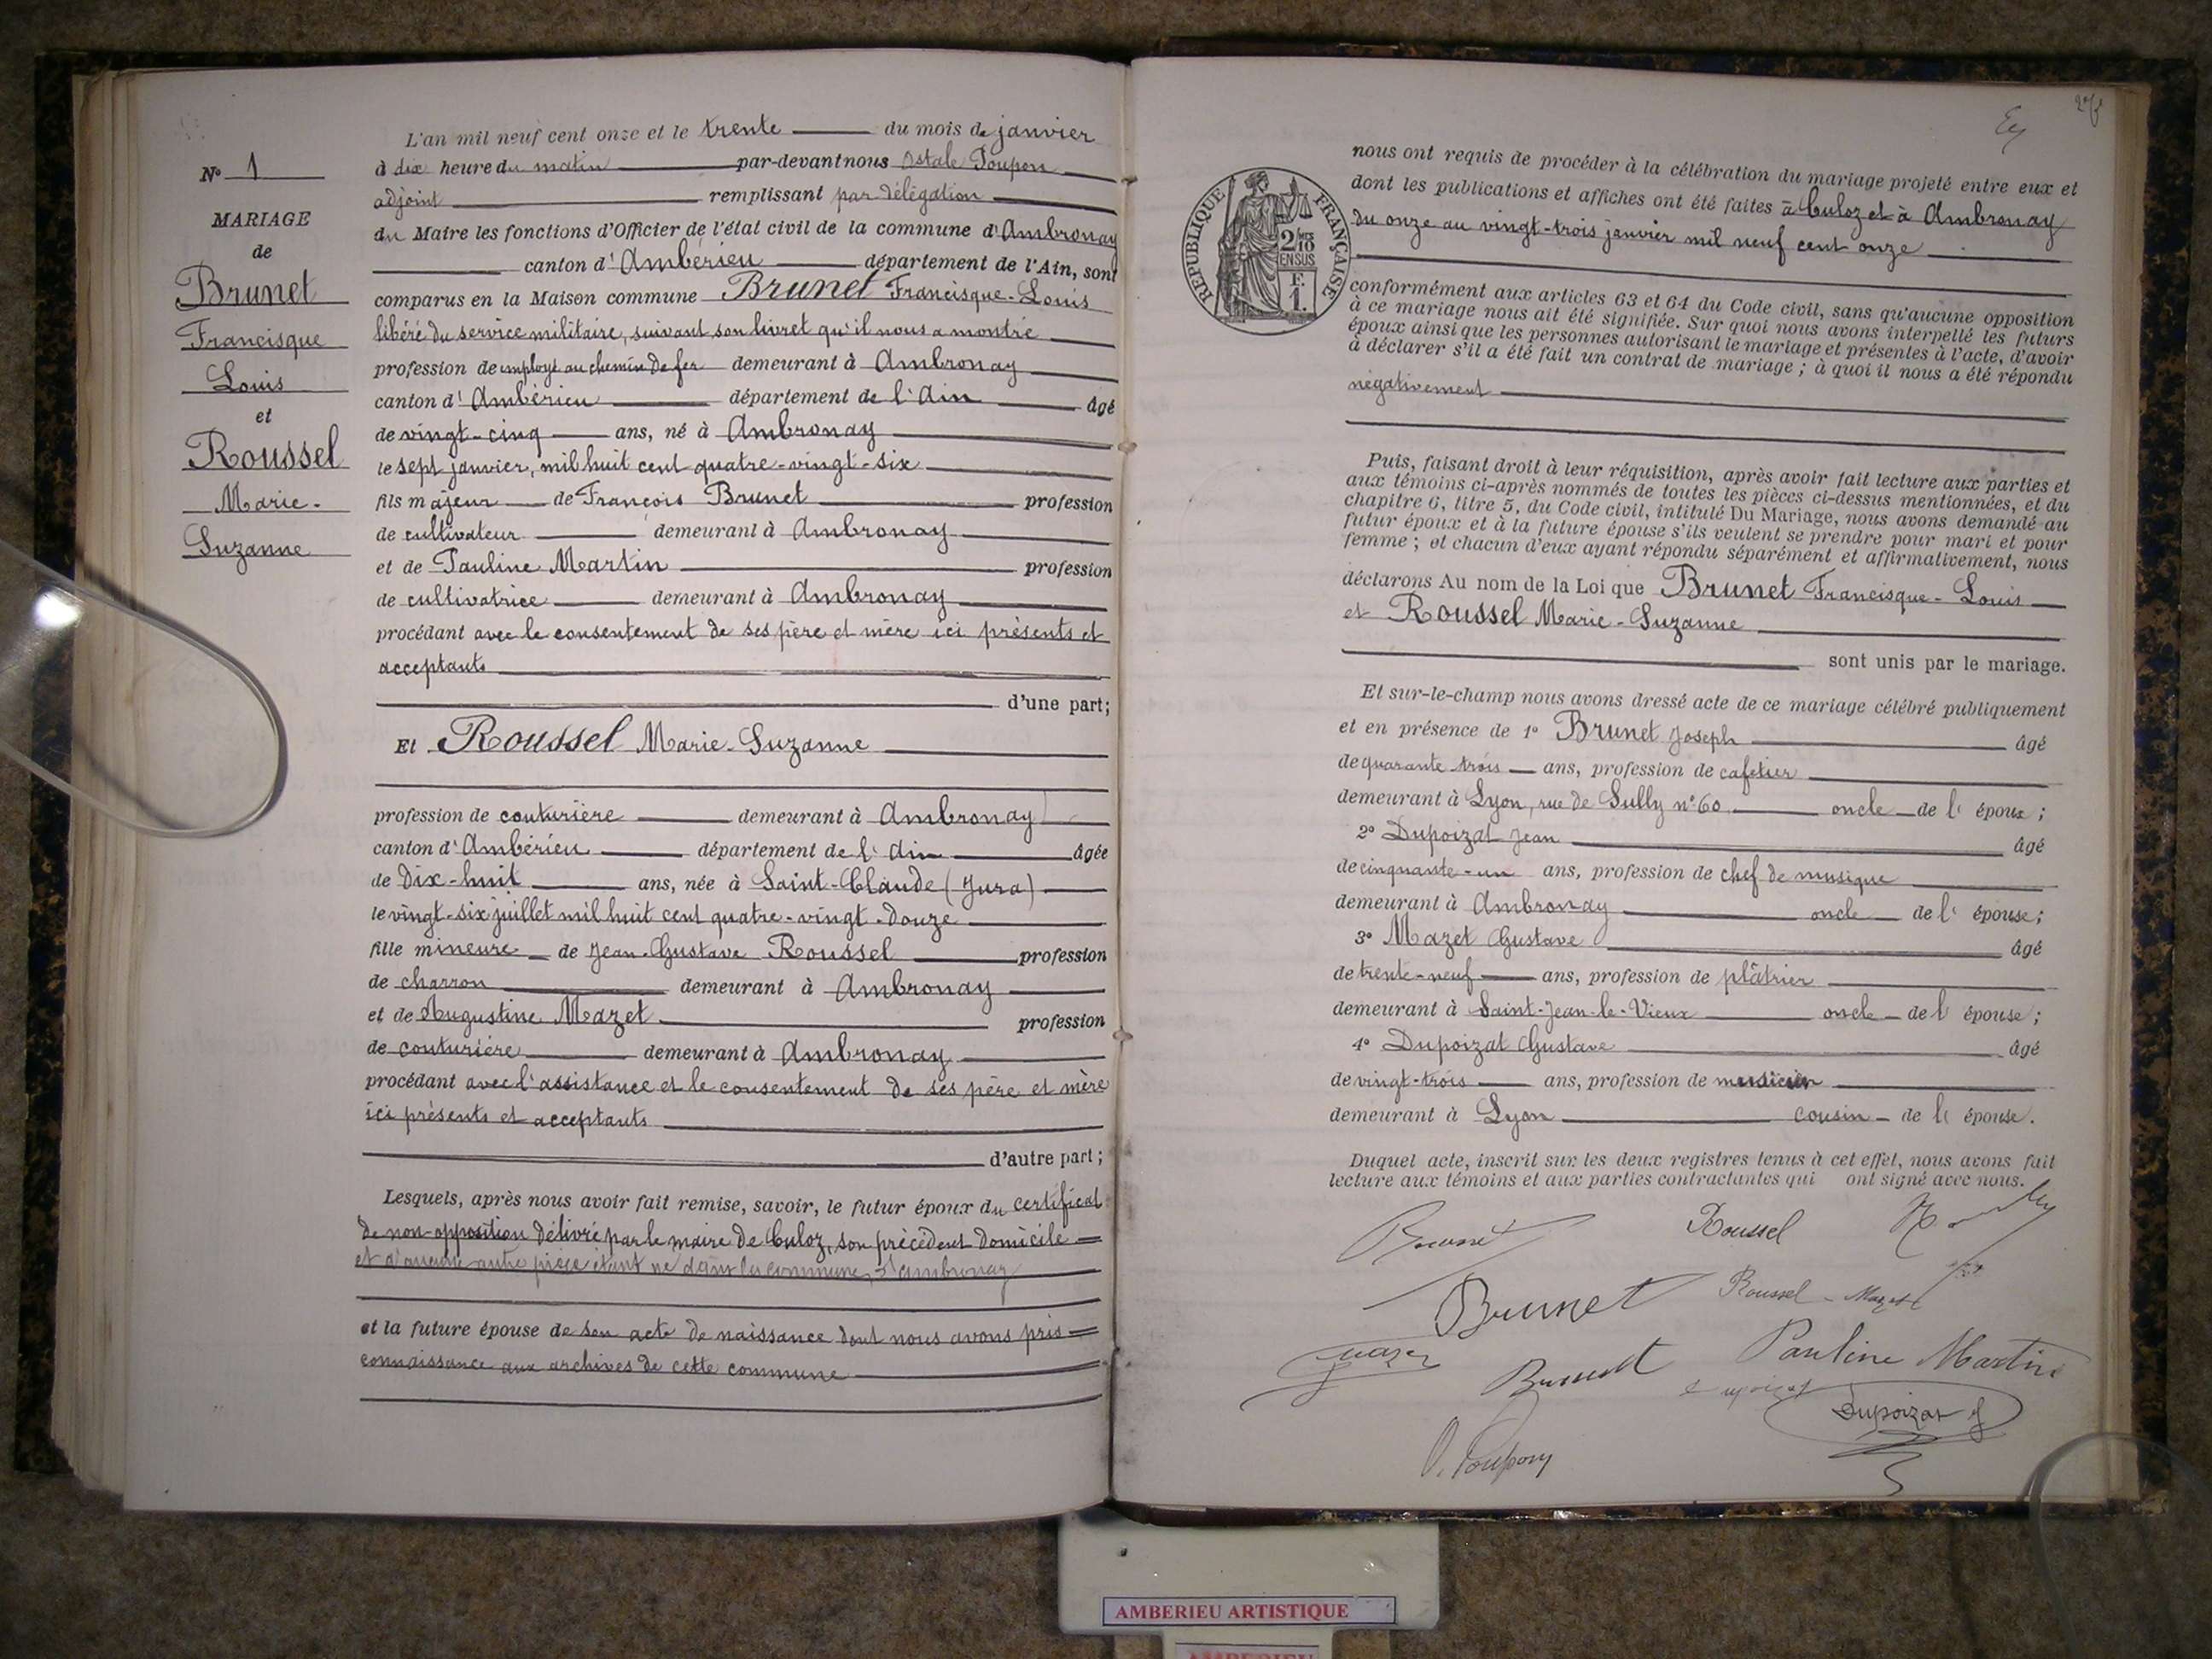 N° 1
MARIAGE
de
Brunet
Francisque
Louis
et
Roussel
Marie-
Suzanne
L'an mil neuf cent onze et le trente du mois de janvier
à dix heure du matin par-devant nous Ostale Poupon
adjoint remplissant par délégation
du Maire les fonctions d'Officier de l'état civil de la commune d'Ambronay
canton d'Ambérieu département de l'Ain, sont
comparus en la Maison commune Brunet Francisque-Louis
libéré du service militaire, suivant son livret qu'il nous a montré
profession de employé au chemin de fer demeurant à Ambronay
canton d'Ambérieu département de l'Ain âgé
de vingt-cinq ans, né à Ambronay
le sept janvier, mil huit cent quatre-vingt-six
fils majeur de François Brunet profession
de cultivateur demeurant à Ambronay
et de Pauline Martin profession
de cultivatrice demeurant à Ambronay
procédant avec le consentement de ses père et mère ici présents et
acceptants
d'une part;
Et Roussel Marie-Suzanne
profession de couturière demeurant à Ambronay
canton d'Ambérieu département de l'Ain âgée
de Dix-huit ans, née à Saint-Claude (Jura)
le vingt-six juillet mil huit cent quatre-vingt-douze
fille mineure de Jean-Gustave Roussel profession
de charron demeurant à Ambronay
et de Augustine Mazet profession
de couturière demeurant à Ambronay
procédant avec l'assistance et le consentement de ses père et mère
ici présents et acceptants
d'autre part;
Lesquels, après nous avoir fait remise, savoir, le futur époux du certificat
de non-opposition délivré par le maire de Culoz, son précédent domicile
et d'aucune autre pièce étant né dans la commune d'Ambronay
et la future épouse de son acte de naissance dont nous avons pris
connaissance aux archives de cette commune
RÉPUBLIQUE FRANÇAISE
2/10
EN SUS
F.
1.
nous ont requis de procéder à la célébration du mariage projeté entre eux et
dont les publications et affiches ont été faites à Culoz et à Ambronay
du onze au vingt-trois janvier mil neuf cent onze
conformément aux articles 63 et 64 du Code civil, sans qu'aucune opposition
à ce mariage nous ait été signifiée. Sur quoi nous avons interpellé les futurs
époux ainsi que les personnes autorisant le mariage et présentes à l'acte, d'avoir
à déclarer s'il a été fait un contrat de mariage; à quoi il nous a été répondu
négativement
Puis, faisant droit à leur réquisition, après avoir fait lecture aux parties et
aux témoins ci-après nommés de toutes les pièces ci-dessus mentionnées, et du
chapitre 6, titre 5, du Code civil, intitulé Du Mariage, nous avons demandé au
futur époux et à la future épouse s'ils veulent se prendre pour mari et pour
femme; et chacun d'eux ayant répondu séparément et affirmativement, nous
déclarons Au nom de la Loi que Brunet Francisque-Louis
et Roussel Marie-Suzanne
sont unis par le mariage.
Et sur-le-champ nous avons dressé acte de ce mariage célébré publiquement
et en présence de 1° Brunet Joseph âgé
de quarante trois ans, profession de cafetier
demeurant à Lyon, rue de Sully n° 60 oncle de l'époux;
2° Dupoizat Jean âgé
de cinquante-un ans, profession de chef de musique
demeurant à Ambronay oncle de l'épouse;
3° Mazet Gustave âgé
de trente-neuf ans, profession de plâtrier
demeurant à Saint-Jean-le-Vieux oncle de l'épouse;
4° Dupoizat Gustave âgé
de vingt-trois ans, profession de musicien
demeurant à Lyon cousin de l'épouse.
Duquel acte, inscrit sur les deux registres tenus à cet effet, nous avons fait
lecture aux témoins et aux parties contractantes qui ont signé avec nous.
Brunet Roussel
Brunet Roussel-Mazet
Brunet Pauline Martin
Dupoizat
O. Poupon
AMBERIEU ARTISTIQUE
AMBERIEU